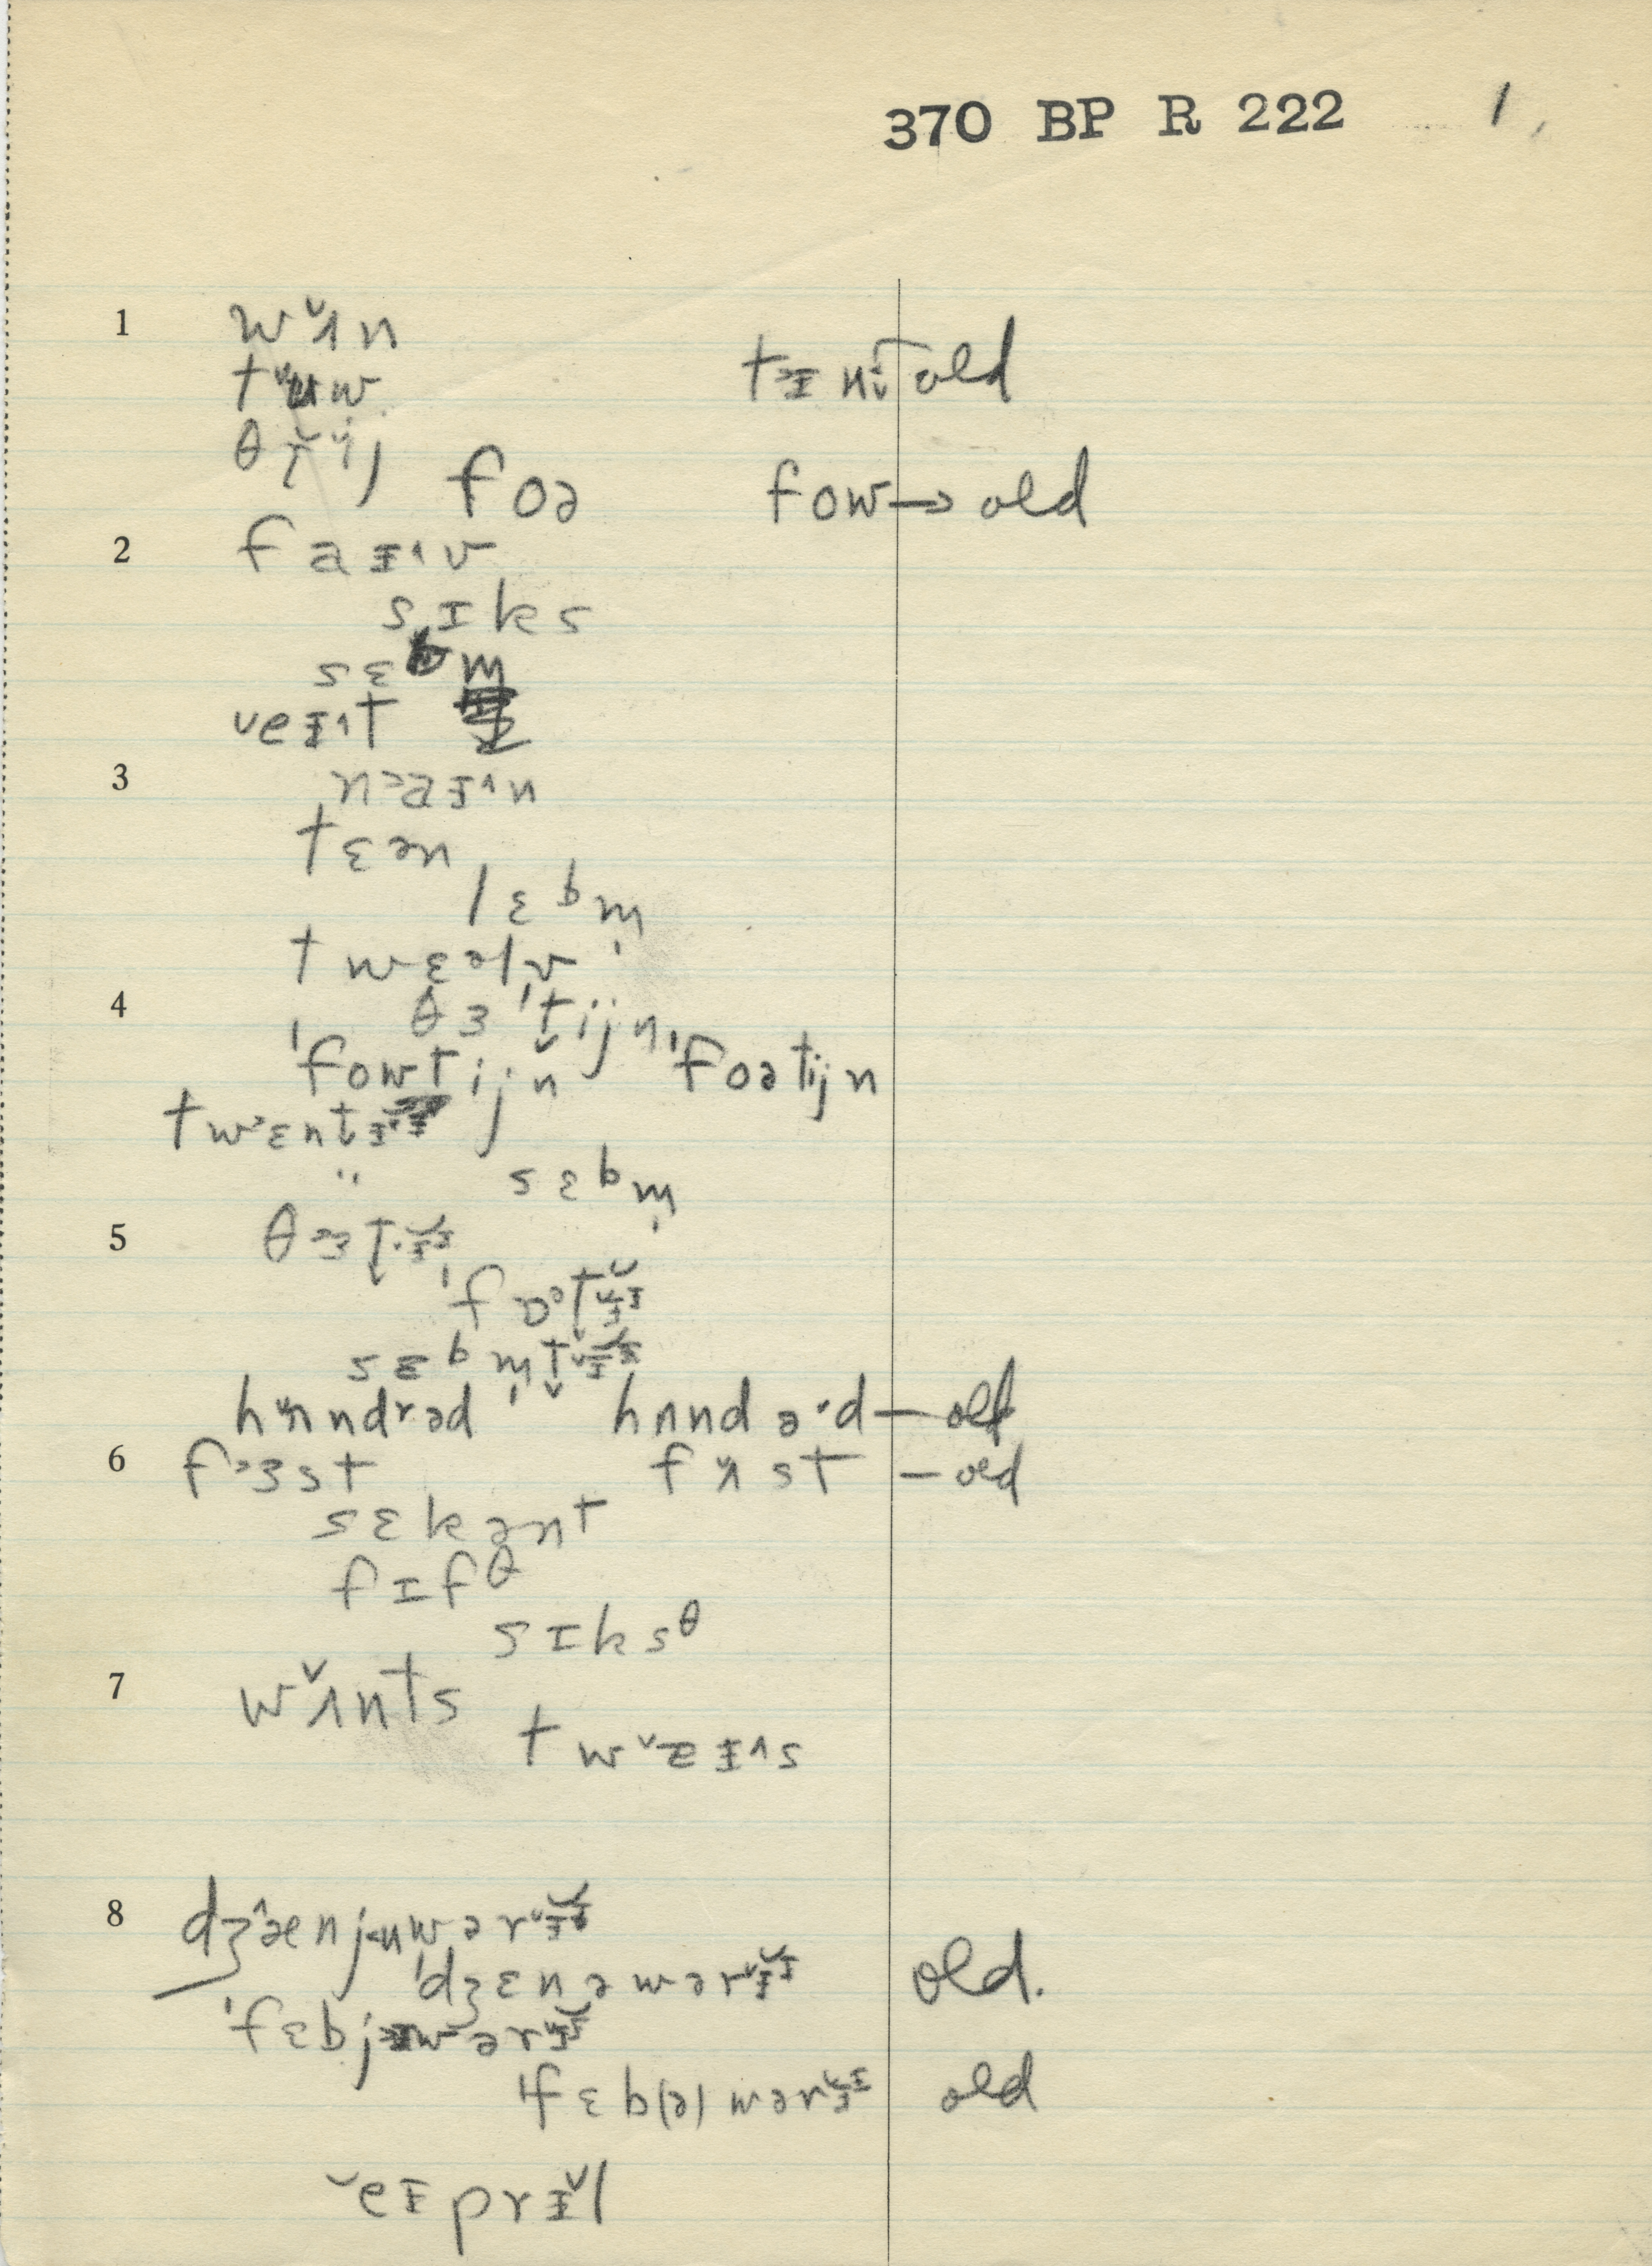 370 BP R 222 1,
1 w˅ʌn
t˅ʉw tɨ˃nt̬ old
θr̆ij
foə fow → old
2 faɨ˄v
sɪks
sɛbm̩
˅eɨ˄t
3 n˃aɨ˄n
tɛən
lɛbm̩
twɛəlv
4 θɜ't̬ijn
'fowtijn 'foətijn
tw˃ɛnt̬ɨ˅ɨ
" sɛbm̩
5 θ˃ɜt̬ɨ̆ɨ
'fɒᵊt̬ɨ̆ɨ
sɛbm̩t̬ɨ̆ɨ
hʌndrəd hʌndə·d — old
6 f˃ɜst fʌst — old
sɛkənt
fɪfθ
sɪksθ
7 w˅ʌnts
tw˅aɨ˄s
8 dʒ˄ænjuwərɨ̆ɨ
'dʒɛnəwərɨ̆ɨ old.
'fɛbjəwərɨ̆ɨ
'fɛb(ə)wərɨ̆ɨ old
˅eɨprɨ˅l